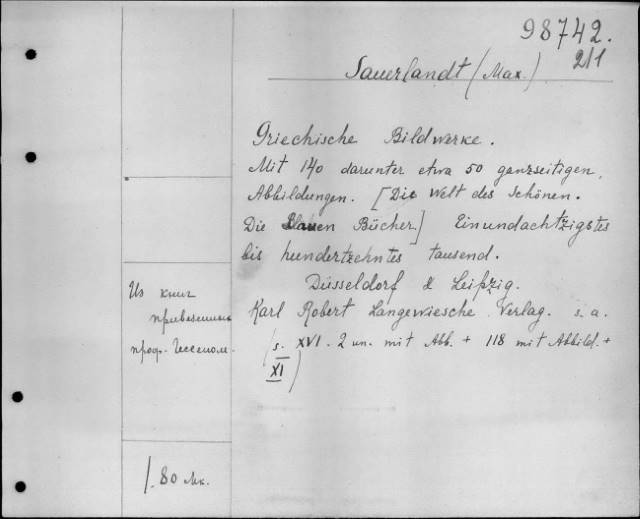 98742.
2/1
Sauerlandt (Max.)
Griechische Bildwerke.
Mit 140 darunter etwa 50 ganzseitigen
Abbildungen. [Die Welt des Schönen.
Die Blauen Bücher.] Einundachtzigstes
bis hundertzehntes tausend.
Düsseldorf & Leipzig.
Karl Robert Langewiesche Verlag. s. a.
(s. XVI. 2 un. mit Abb. + 118 mit Abbild. +
XI)
Из книг
привезенных
проф. Гессеном.
1.80 Мк.